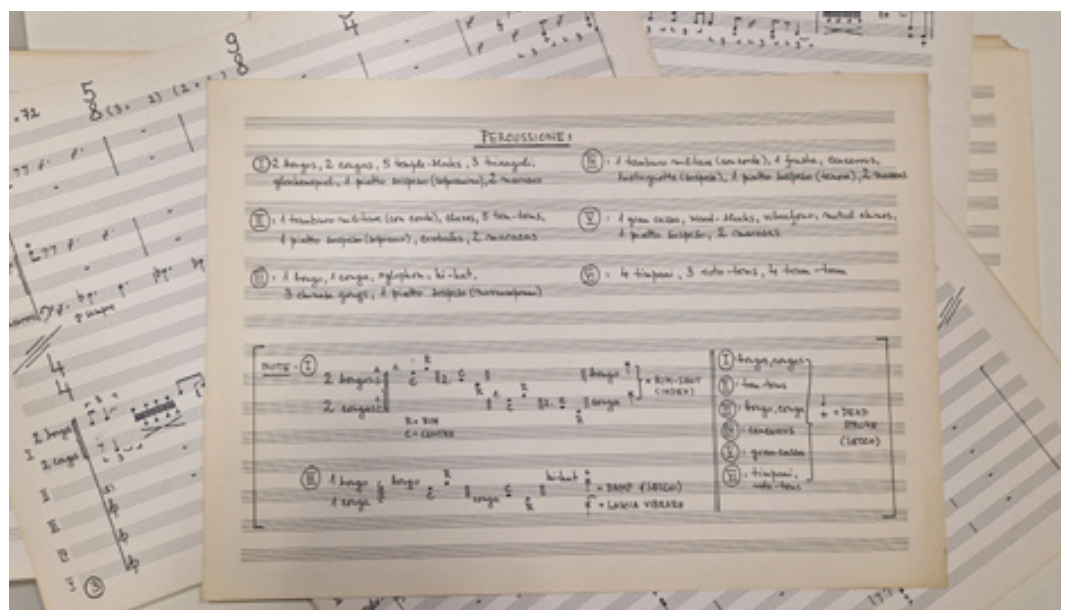 PERCUSSIONE:
I 2 bongos, 2 congas, 5 temple-blocks, 3 triangoli,
glockenspiel, 1 piatto sospeso (sopranino), 2 maracas
II : 1 tamburo militare (con corde), claves, 5 tom-toms,
1 piatto sospeso (soprano), crotales, 2 maracas
III : 1 bongo, 1 conga, xylophon, hi-hat,
3 chinese gongs, 1 piatto sospeso (mezzosoprano)
IV : 1 tamburo militare (con corde), 1 frusta, cencerros,
1 piatto sospeso (tenore), 2 maracas
V : 1 gran cassa, wood-blocks, vibrafono, metal chimes,
1 piatto sospeso, 2 maracas
VI : 4 timpani, 3 roto-toms, 4 tam-tam
NOTE: I
2 bongos
2 congas
R = RIM
C = CENTRO
bongo
conga
= RIM-SHOT
(INDEX)
III 1 bongo
1 conga
bongo
conga
hi-hat
= DAMP (SECCO)
= LASCIA VIBRARE
I : bongos, congas
II : tom-toms
III : bongo, conga
IV : cencerros
V : gran cassa
VI : timpani,
roto-toms
= DEAD
STROKE
(SECCO)
. 72
5
8
(3+ 2) (2+
9
8
4
4
4
I
2 bongos
2 congas
II
III